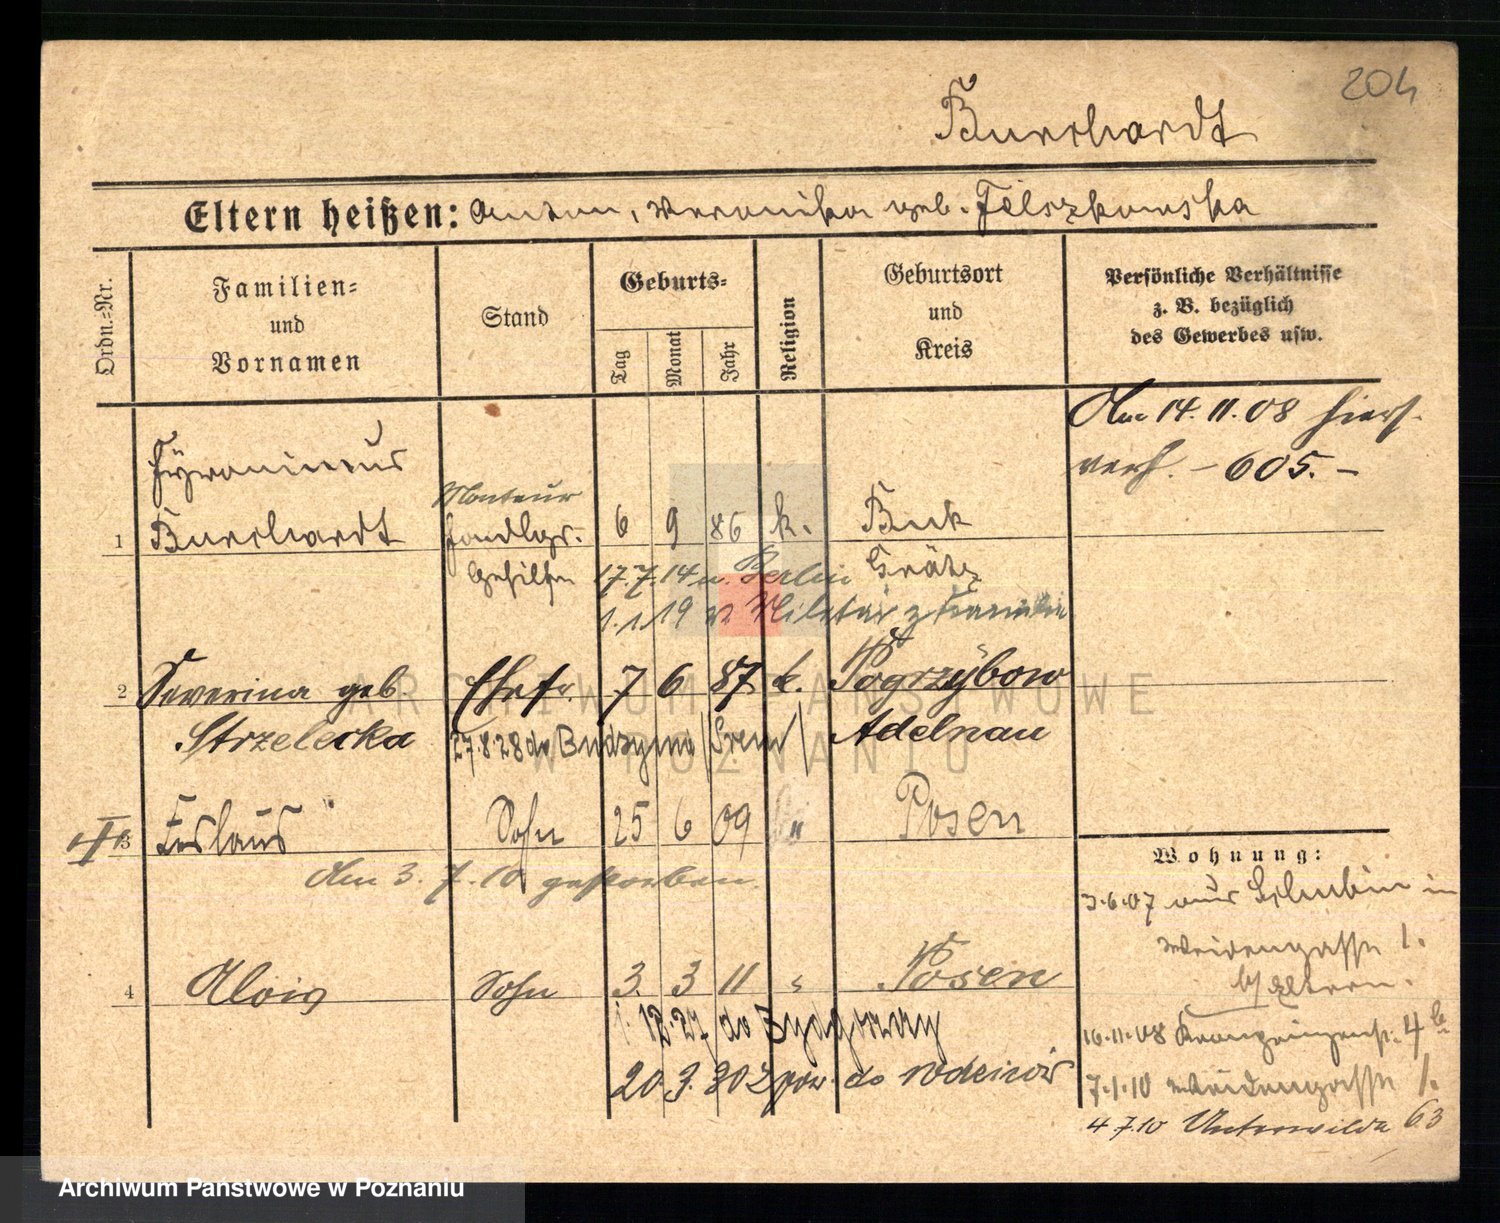 204
Burchardt
Eltern heißen: Anton, Veronika geb. Felszkowska
Ordn.=Nr.
Familien=
und
Vornamen
Stand
Geburts=
Tag
Monat
Jahr
Religion
Geburtsort
und
Kreis
Persönliche Verhältnisse
z. B. bezüglich
des Gewerbes usw.
Am 14. 11. 08 hiers.
verh. – 605. –
Hyronimus
Monteur
1 Burchardt Handlgs.- 6 9 86 k. Buk
Gehilfe 17.7.14 n. Berlin Grätz
1. 1. 19 v Militär z Familie
2 Severina geb. Ehefr. 7 6 87 k. Pogrzybow
Strzelecka 27.8.28 do Budzynia /Śrem/ Adelnau
3 Sohn 25 6 09 Posen
Am 3. 7. 10 gestorben.
4 Alois Sohn 3. 3 11 " Posen
1. 12. 27 do Bydgoszczy
20. 3. 30 z pow. do rodziców
Wohnung:
3.6.07 aus in
Weidengasse 1.
b/ Eltern.
16.11.08 Kronprinzenstr. 4 b
7.1.10 Weidengasse 1.
4.7.10 Unterwilda 63
ARCHIWUM PAŃSTWOWE
W POZNANIU
Archiwum Państwowe w Poznaniu